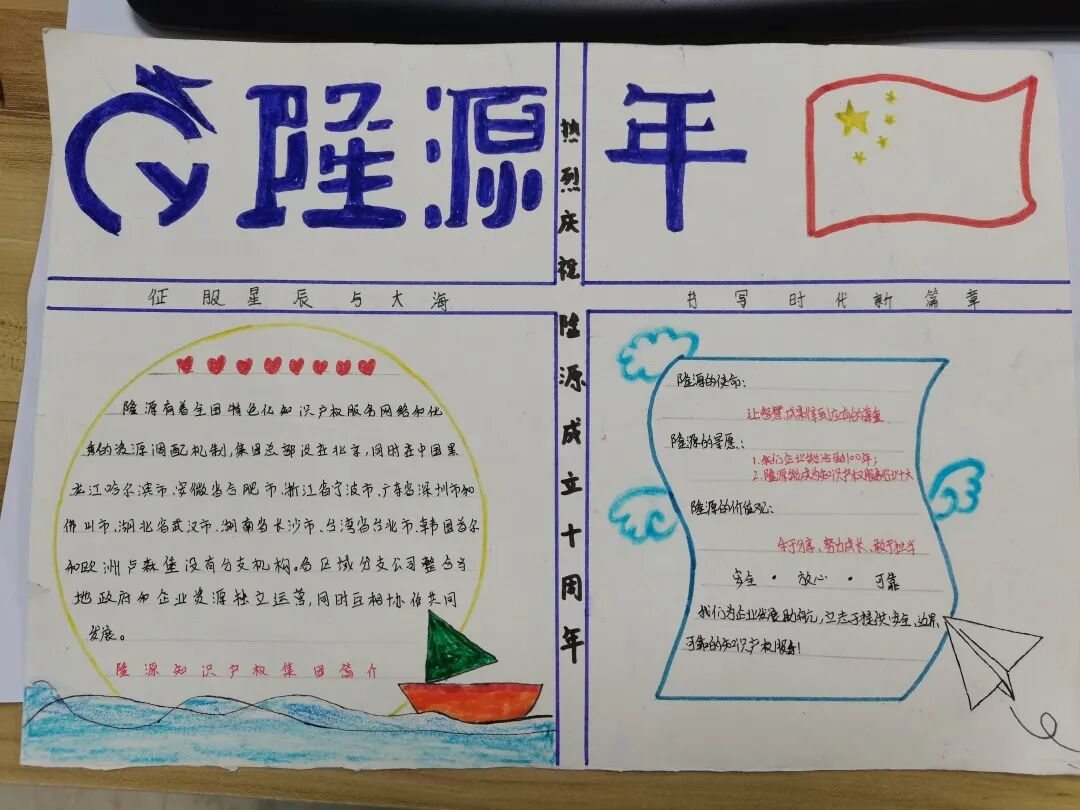 隆源 年
热烈庆祝隆源成立十周年
征服星辰与大海
书写时代新篇章
隆源有着全国特色化知识产权服务网络和优
良的资源调配机制,集团总部设在北京,同时在中国黑
龙江哈尔滨市、安徽省合肥市、浙江省宁波市、广东省深圳市和
佛山市、湖北省武汉市、湖南省长沙市、台湾省台北市、韩国首尔
和欧洲卢森堡设有分支机构。各区域分支公司整合当
地政府和企业资源独立运营,同时互相协作共同
发展。
隆源知识产权集团简介
隆源的使命:
让智慧成果得到应有的尊重
隆源的景愿:
1.我们企业能活到100年;
2.隆源能成为知识产权服务行业十大
隆源的价值观:
乐于分享、努力成长、敢于担当
安全·放心·可靠
我们为企业发展助航,立志于提供安全、
可靠的知识产权服务!